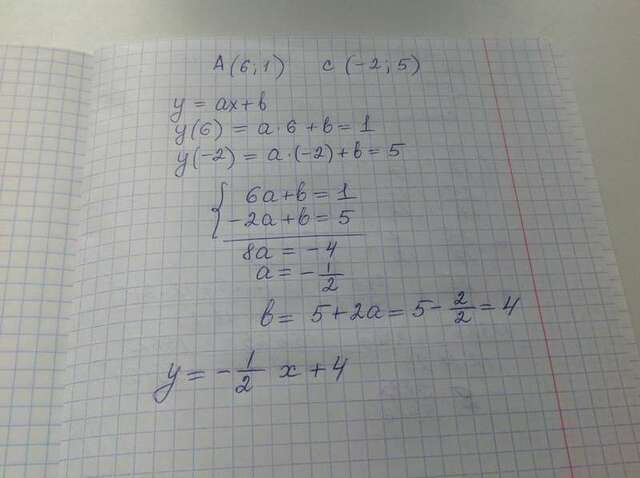 A(6;1) C(-2;5)
y = ax+b
y(6) = a·6+b=1
y(-2) = a·(-2)+b=5
{ 6a+b=1
-2a+b=5
8a = -4
a = -1/2
b = 5+2a = 5-2/2 = 4
y = -1/2 x+4